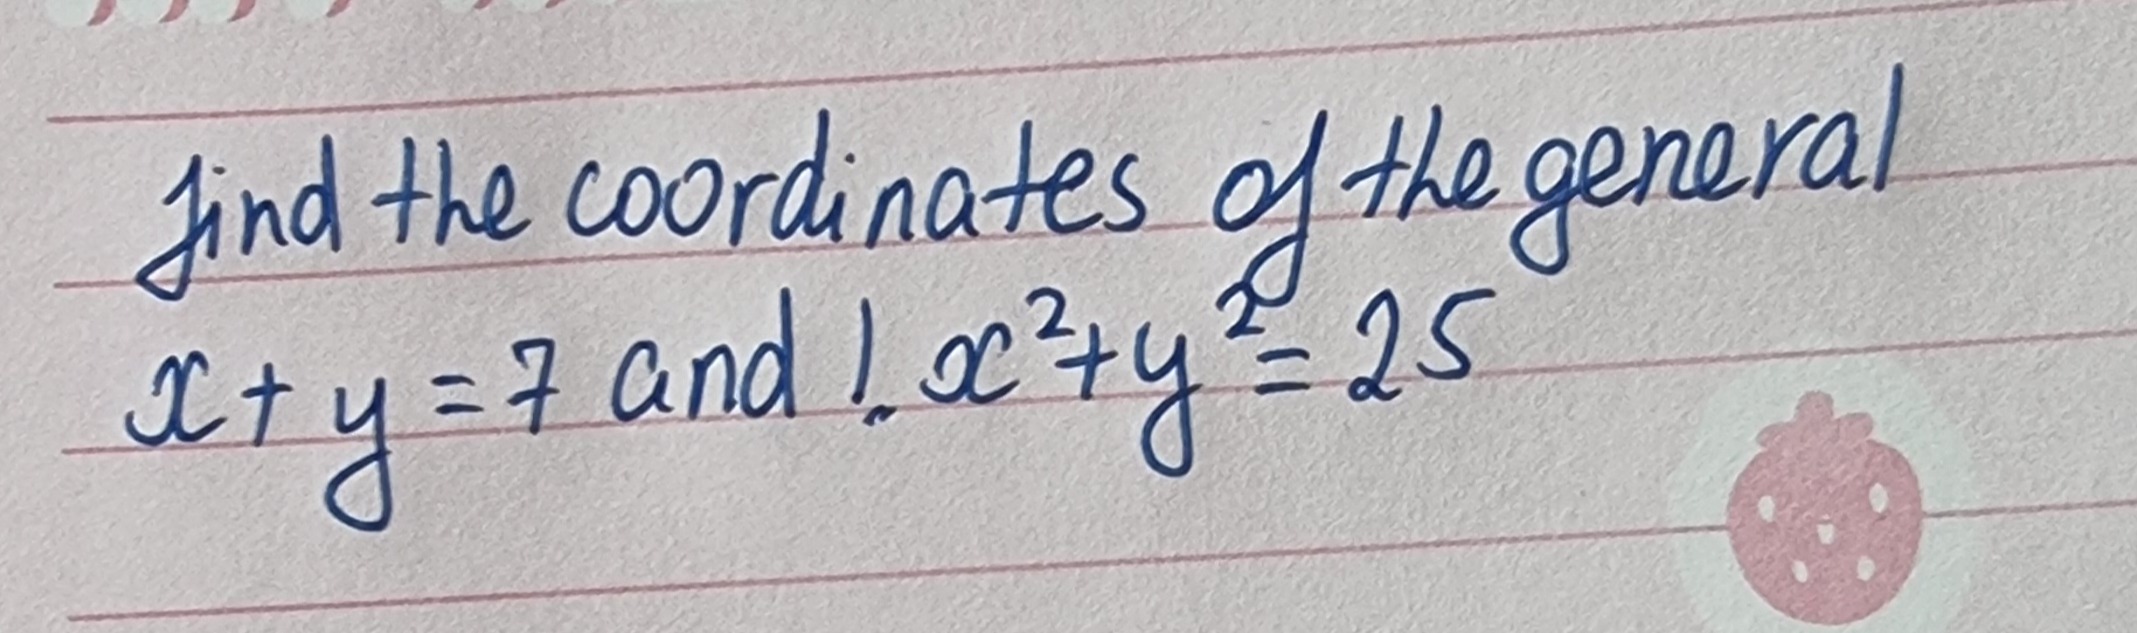 find the coordinates of the general
x + y = 7 and ! x² + y² = 25